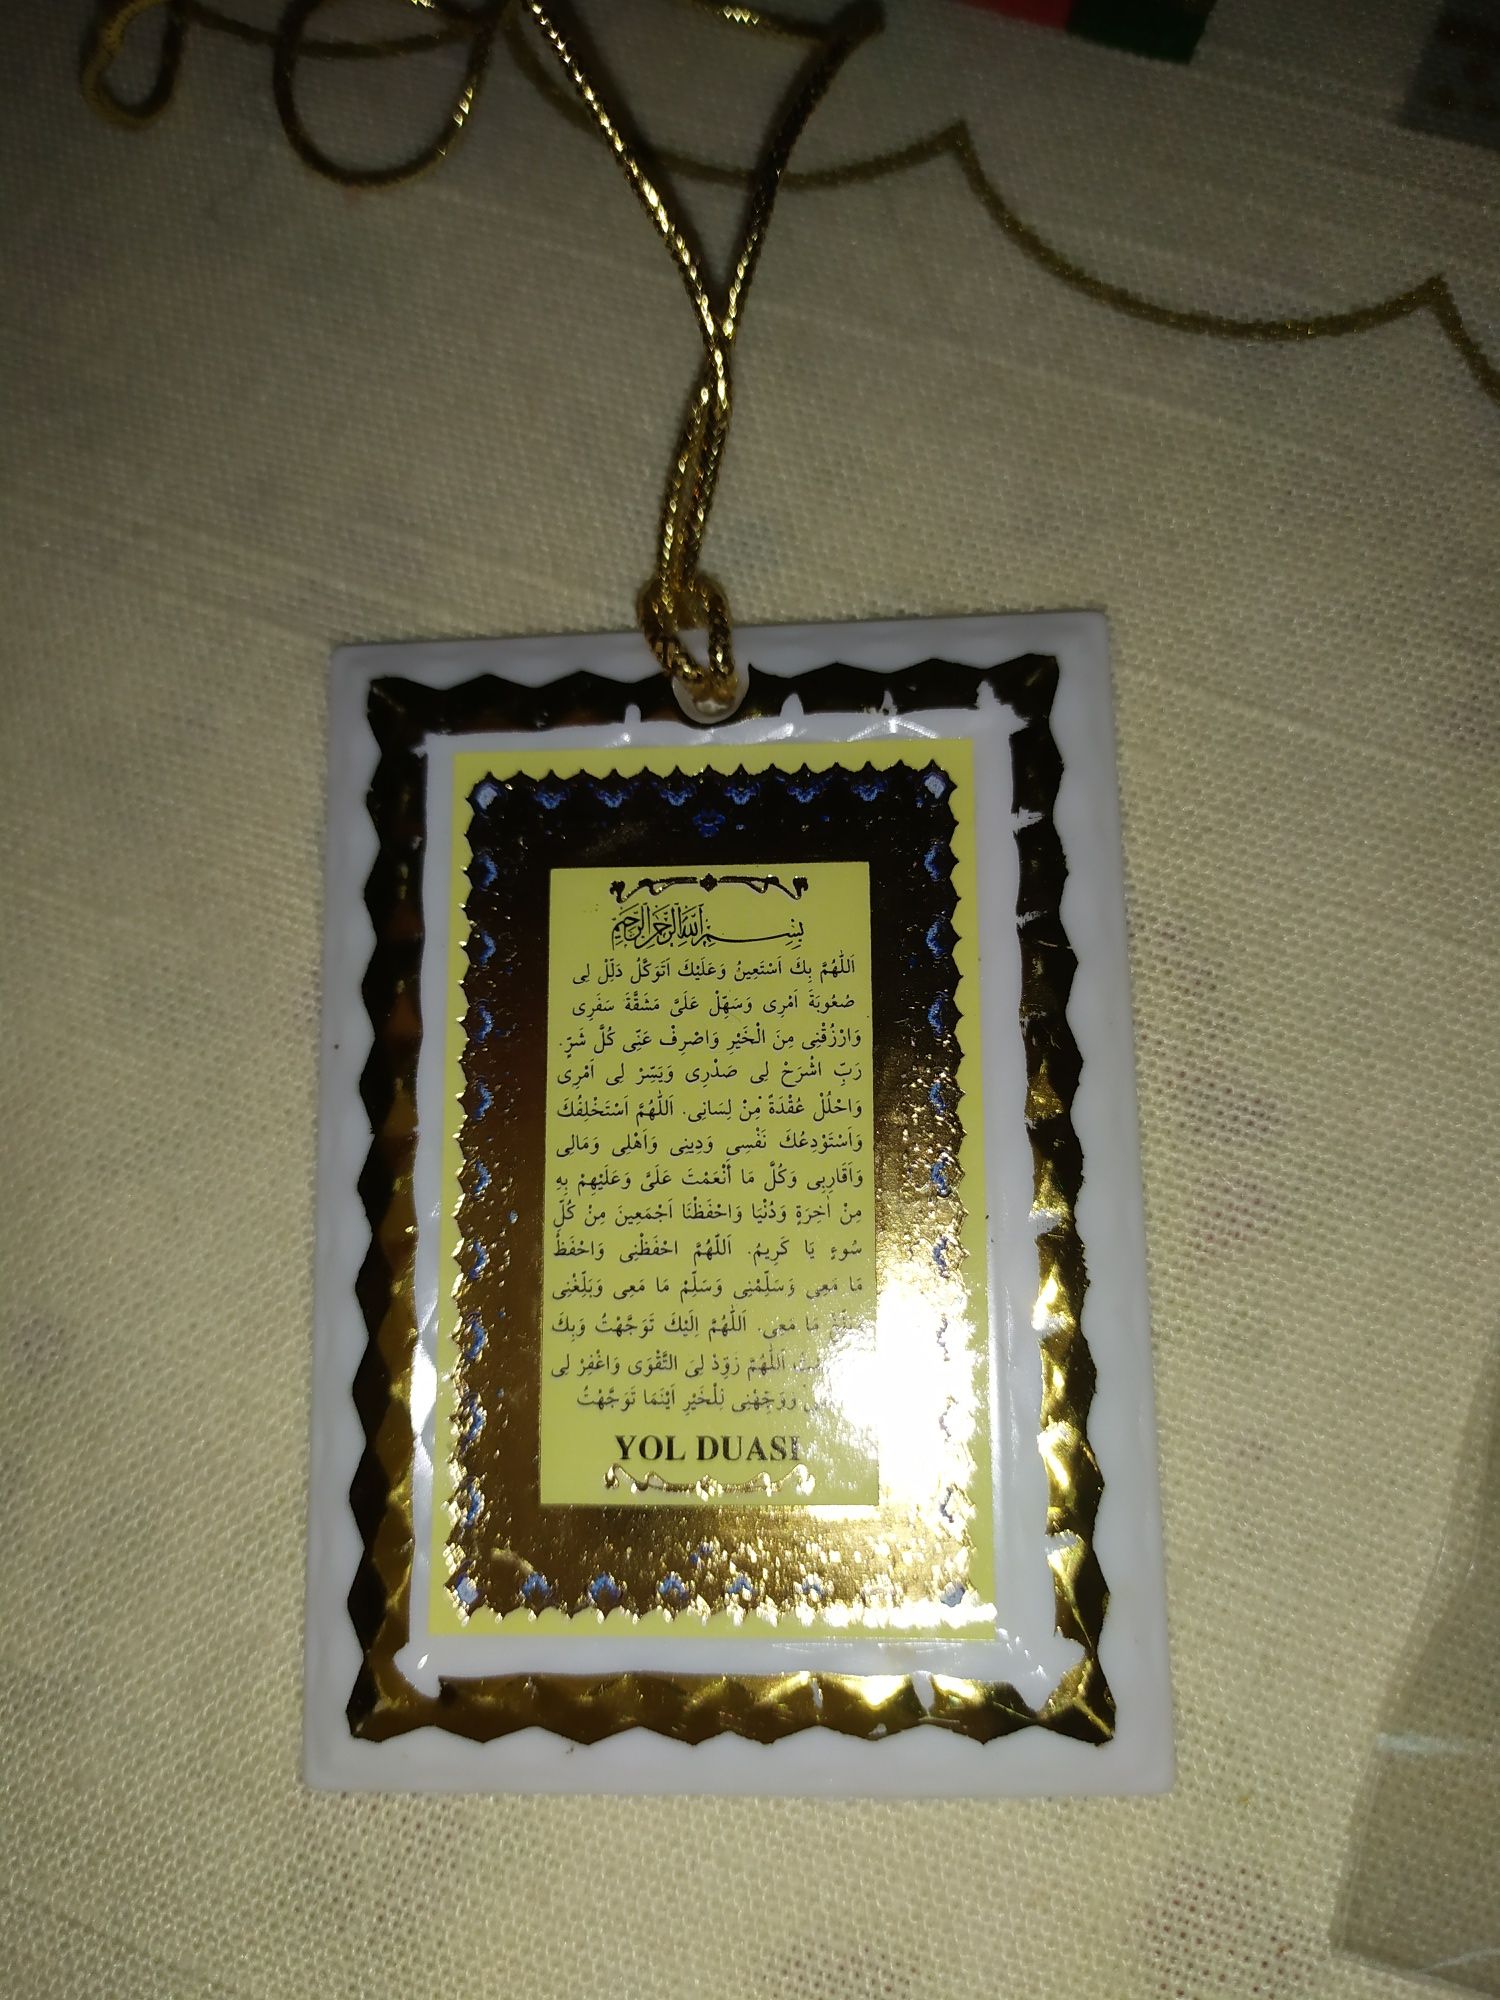 بِسْمِ اللهِ الرَّحْمٰنِ الرَّحِيمِ
اَللّٰهُمَّ بِكَ اَسْتَعِينُ وَعَلَيْكَ اَتَوَكَّلُ ذَلِّلْ لِى
صُعُوبَةَ اَمْرِى وَسَهِّلْ عَلَىَّ مَشَقَّةَ سَفَرِى
وَارْزُقْنِى مِنَ الْخَيْرِ وَاصْرِفْ عَنِّى كُلَّ شَرٍّ.
رَبِّ اشْرَحْ لِى صَدْرِى وَيَسِّرْ لِى اَمْرِى
وَاحْلُلْ عُقْدَةً مِنْ لِسَانِى. اَللّٰهُمَّ اَسْتَخْلِفُكَ
وَاَسْتَوْدِعُكَ نَفْسِى وَدِينِى وَاَهْلِى وَمَالِى
وَاَقَارِبِى وَكُلَّ مَا أَنْعَمْتَ عَلَىَّ وَعَلَيْهِمْ بِهِ
مِنْ اٰخِرَةٍ وَدُنْيَا وَاحْفَظْنَا اَجْمَعِينَ مِنْ كُلِّ
سُوءٍ يَا كَرِيمُ. اَللّٰهُمَّ احْفَظْنِى وَاحْفَظْ
مَا مَعِى وَسَلِّمْنِى وَسَلِّمْ مَا مَعِى وَبَلِّغْنِى
مَا مَعِى. اَللّٰهُمَّ اِلَيْكَ تَوَجَّهْتُ وَبِكَ
اَللّٰهُمَّ زَوِّدْ لِىَ التَّقْوَى وَاغْفِرْ لِى
وَوَجِّهْنِى لِلْخَيْرِ اَيْنَمَا تَوَجَّهْتُ
YOL DUASI